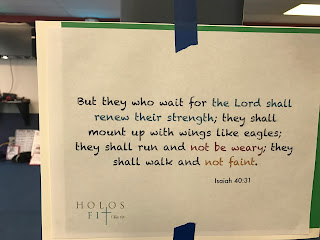 But they who wait for the Lord shall
renew their strength; they shall
mount up with wings like eagles;
they shall run and not be weary; they
shall walk and not faint.
Isaiah 40:31
HOLOS
FIT